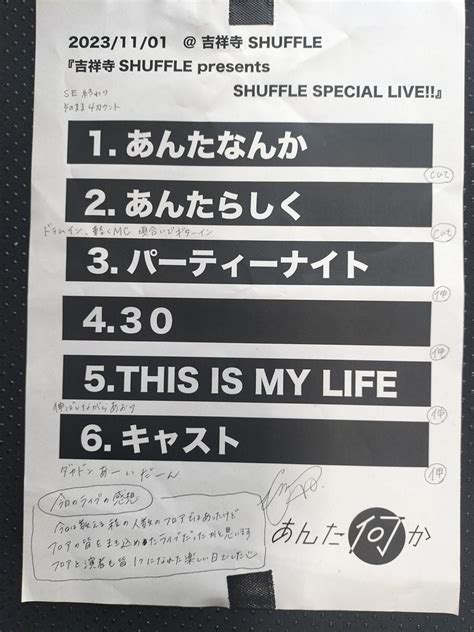 2023/11/01 @ 吉祥寺 SHUFFLE
『吉祥寺 SHUFFLE presents
SHUFFLE SPECIAL LIVE!!』
SE 終わり
そのまま4カウント
1. あんたなんか
cut
2. あんたらしく
cut
ドラムイン、軽くMC 頃合いでギターイン
3. パーティーナイト
伸
4.30
伸
5.THIS IS MY LIFE
伸
伸ばしながらあおり
6. キャスト
伸
ダカドン あーい だーん
今日のライブの感想
今日は数える程の人数のフロアではあったけど
フロアの皆をまき込めたライブだったかと思います
フロアと演者も皆1つになれた楽しい日でした
あんた何か